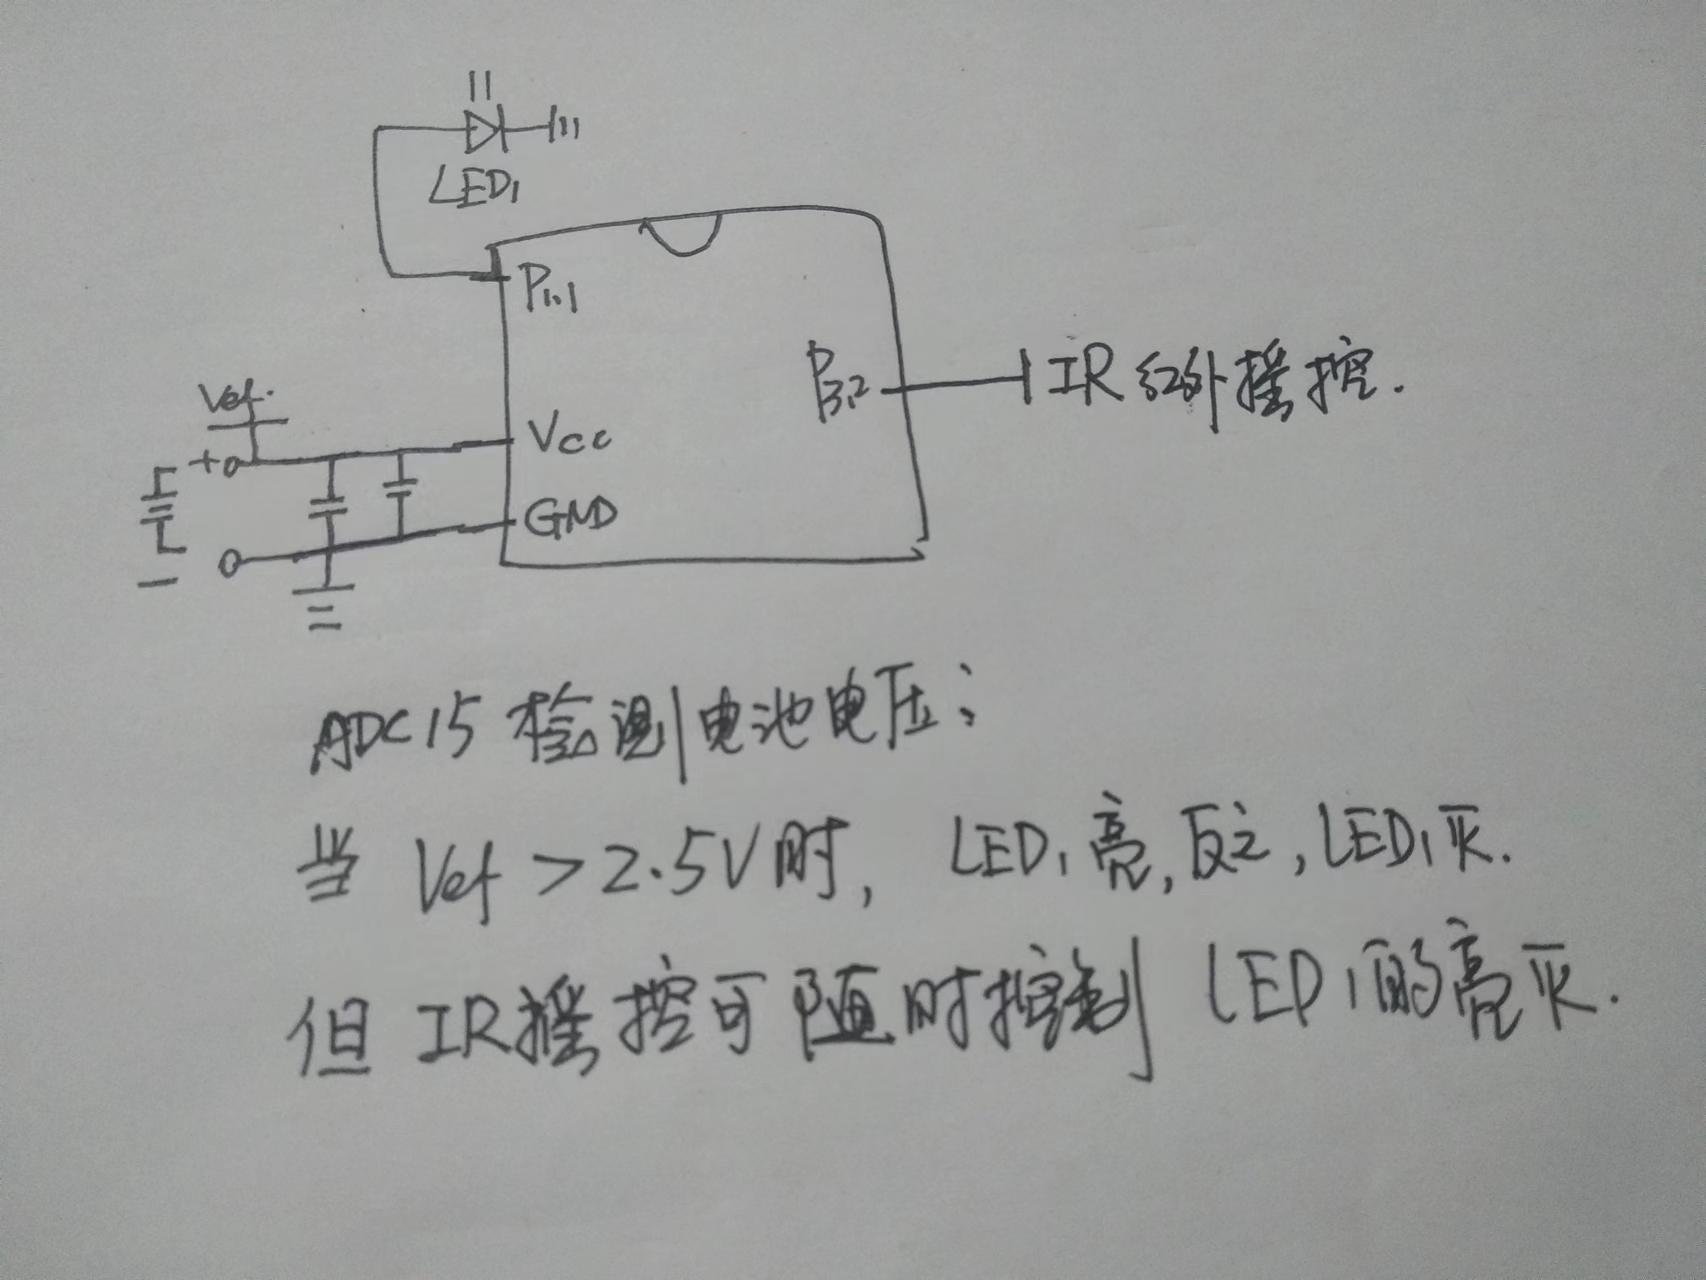 LED1
P1.1
P3.2
IR 红外摇控.
Vef.
+
Vcc
GND
−
ADC15 检测电池电压;
当 Vef > 2.5V 时, LED1 亮, 反之, LED1 灭.
但 IR 摇控可随时控制 LED1 的亮灭.